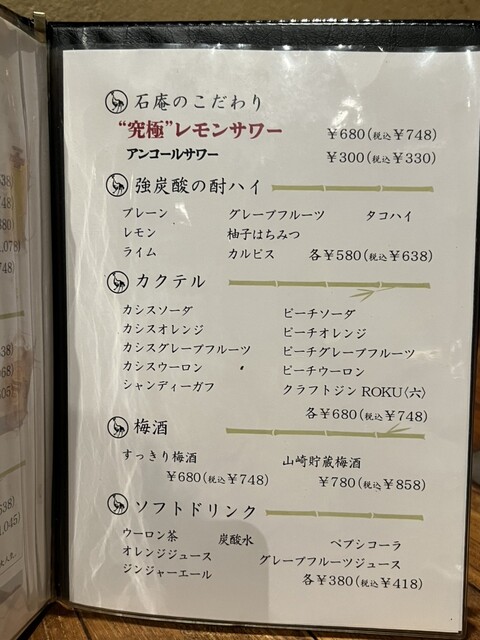 石庵のこだわり
“究極”レモンサワー ¥680(税込¥748)
アンコールサワー ¥300(税込¥330)
強炭酸の酎ハイ
プレーン グレープフルーツ タコハイ
レモン 柚子はちみつ
ライム カルピス 各¥580(税込¥638)
カクテル
カシスソーダ ピーチソーダ
カシスオレンジ ピーチオレンジ
カシスグレープフルーツ ピーチグレープフルーツ
カシスウーロン ピーチウーロン
シャンディーガフ クラフトジンROKU〈六〉
各¥680(税込¥748)
梅酒
すっきり梅酒 山崎貯蔵梅酒
¥680(税込¥748) ¥780(税込¥858)
ソフトドリンク
ウーロン茶 炭酸水 ペプシコーラ
オレンジジュース グレープフルーツジュース
ジンジャーエール 各¥380(税込¥418)